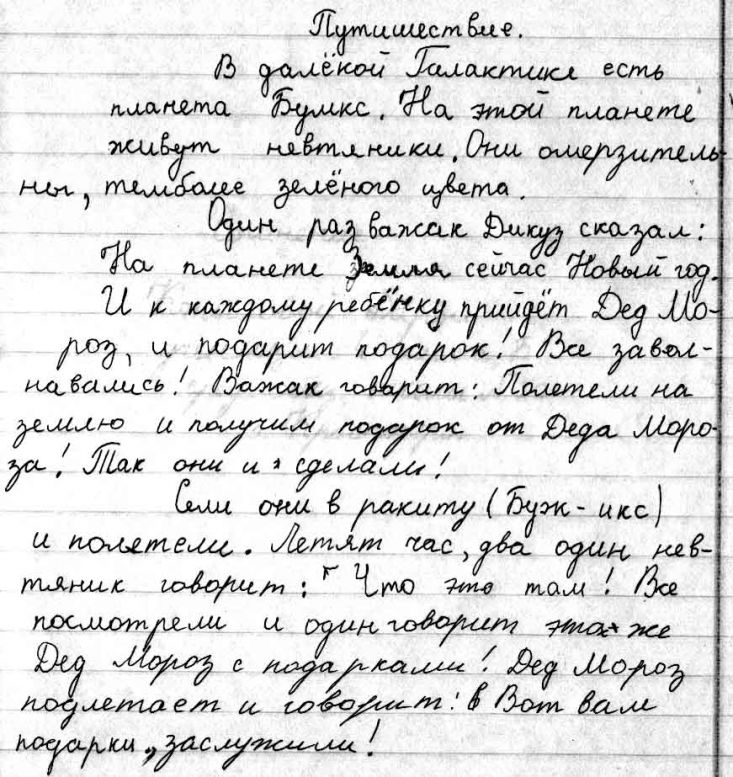 Путишествие.
В далёкой Галактике есть
планета Бумкс. На этой планете
живут невтяники. Они омерзитель-
ны, темболее зелёного цвета.
Один раз важак Дикуз сказал:
На планете Земля сейчас Новый год.
И к каждому ребёнку прийдёт Дед Мо-
роз, и подарит подарок! Все завол-
навались! Важак говорит: Полетели на
землю и получим подарок от Деда Моро-
за! Так они и сделали!
Сели они в ракиту (Буж-икс)
и полетели. Летят час, два один нев-
тяник говорит: Что это там! Все
посмотрели и один говорит это же
Дед Мороз с подарками! Дед Мороз
подлетает и говорит: в Вот вам
подарки, заслужили!